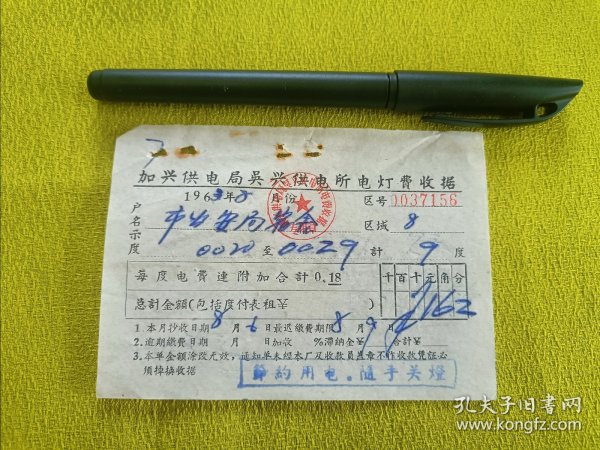 加兴供电局吴兴供电所电灯费收据
1963年8月份 区号 0037156
户名 市公安局宿舍 区域 8
示度 0020 至 0029 計 9 度
每度电費連附加合計0.18 千百十元角分
总計金額(包括度付表租¥ ) 162
1.本月抄收日期8月6日最迟繳費期限8月9日
2.逾期繳費日期 月 日加收 %滯納金¥ 合計¥
3.本单金額涂改无效，通知单未經本厂及收款員蓋章不作收款凭証必
須掉換收据
節約用电。隨手关燈
孔夫子旧书网
www.kongfz.com